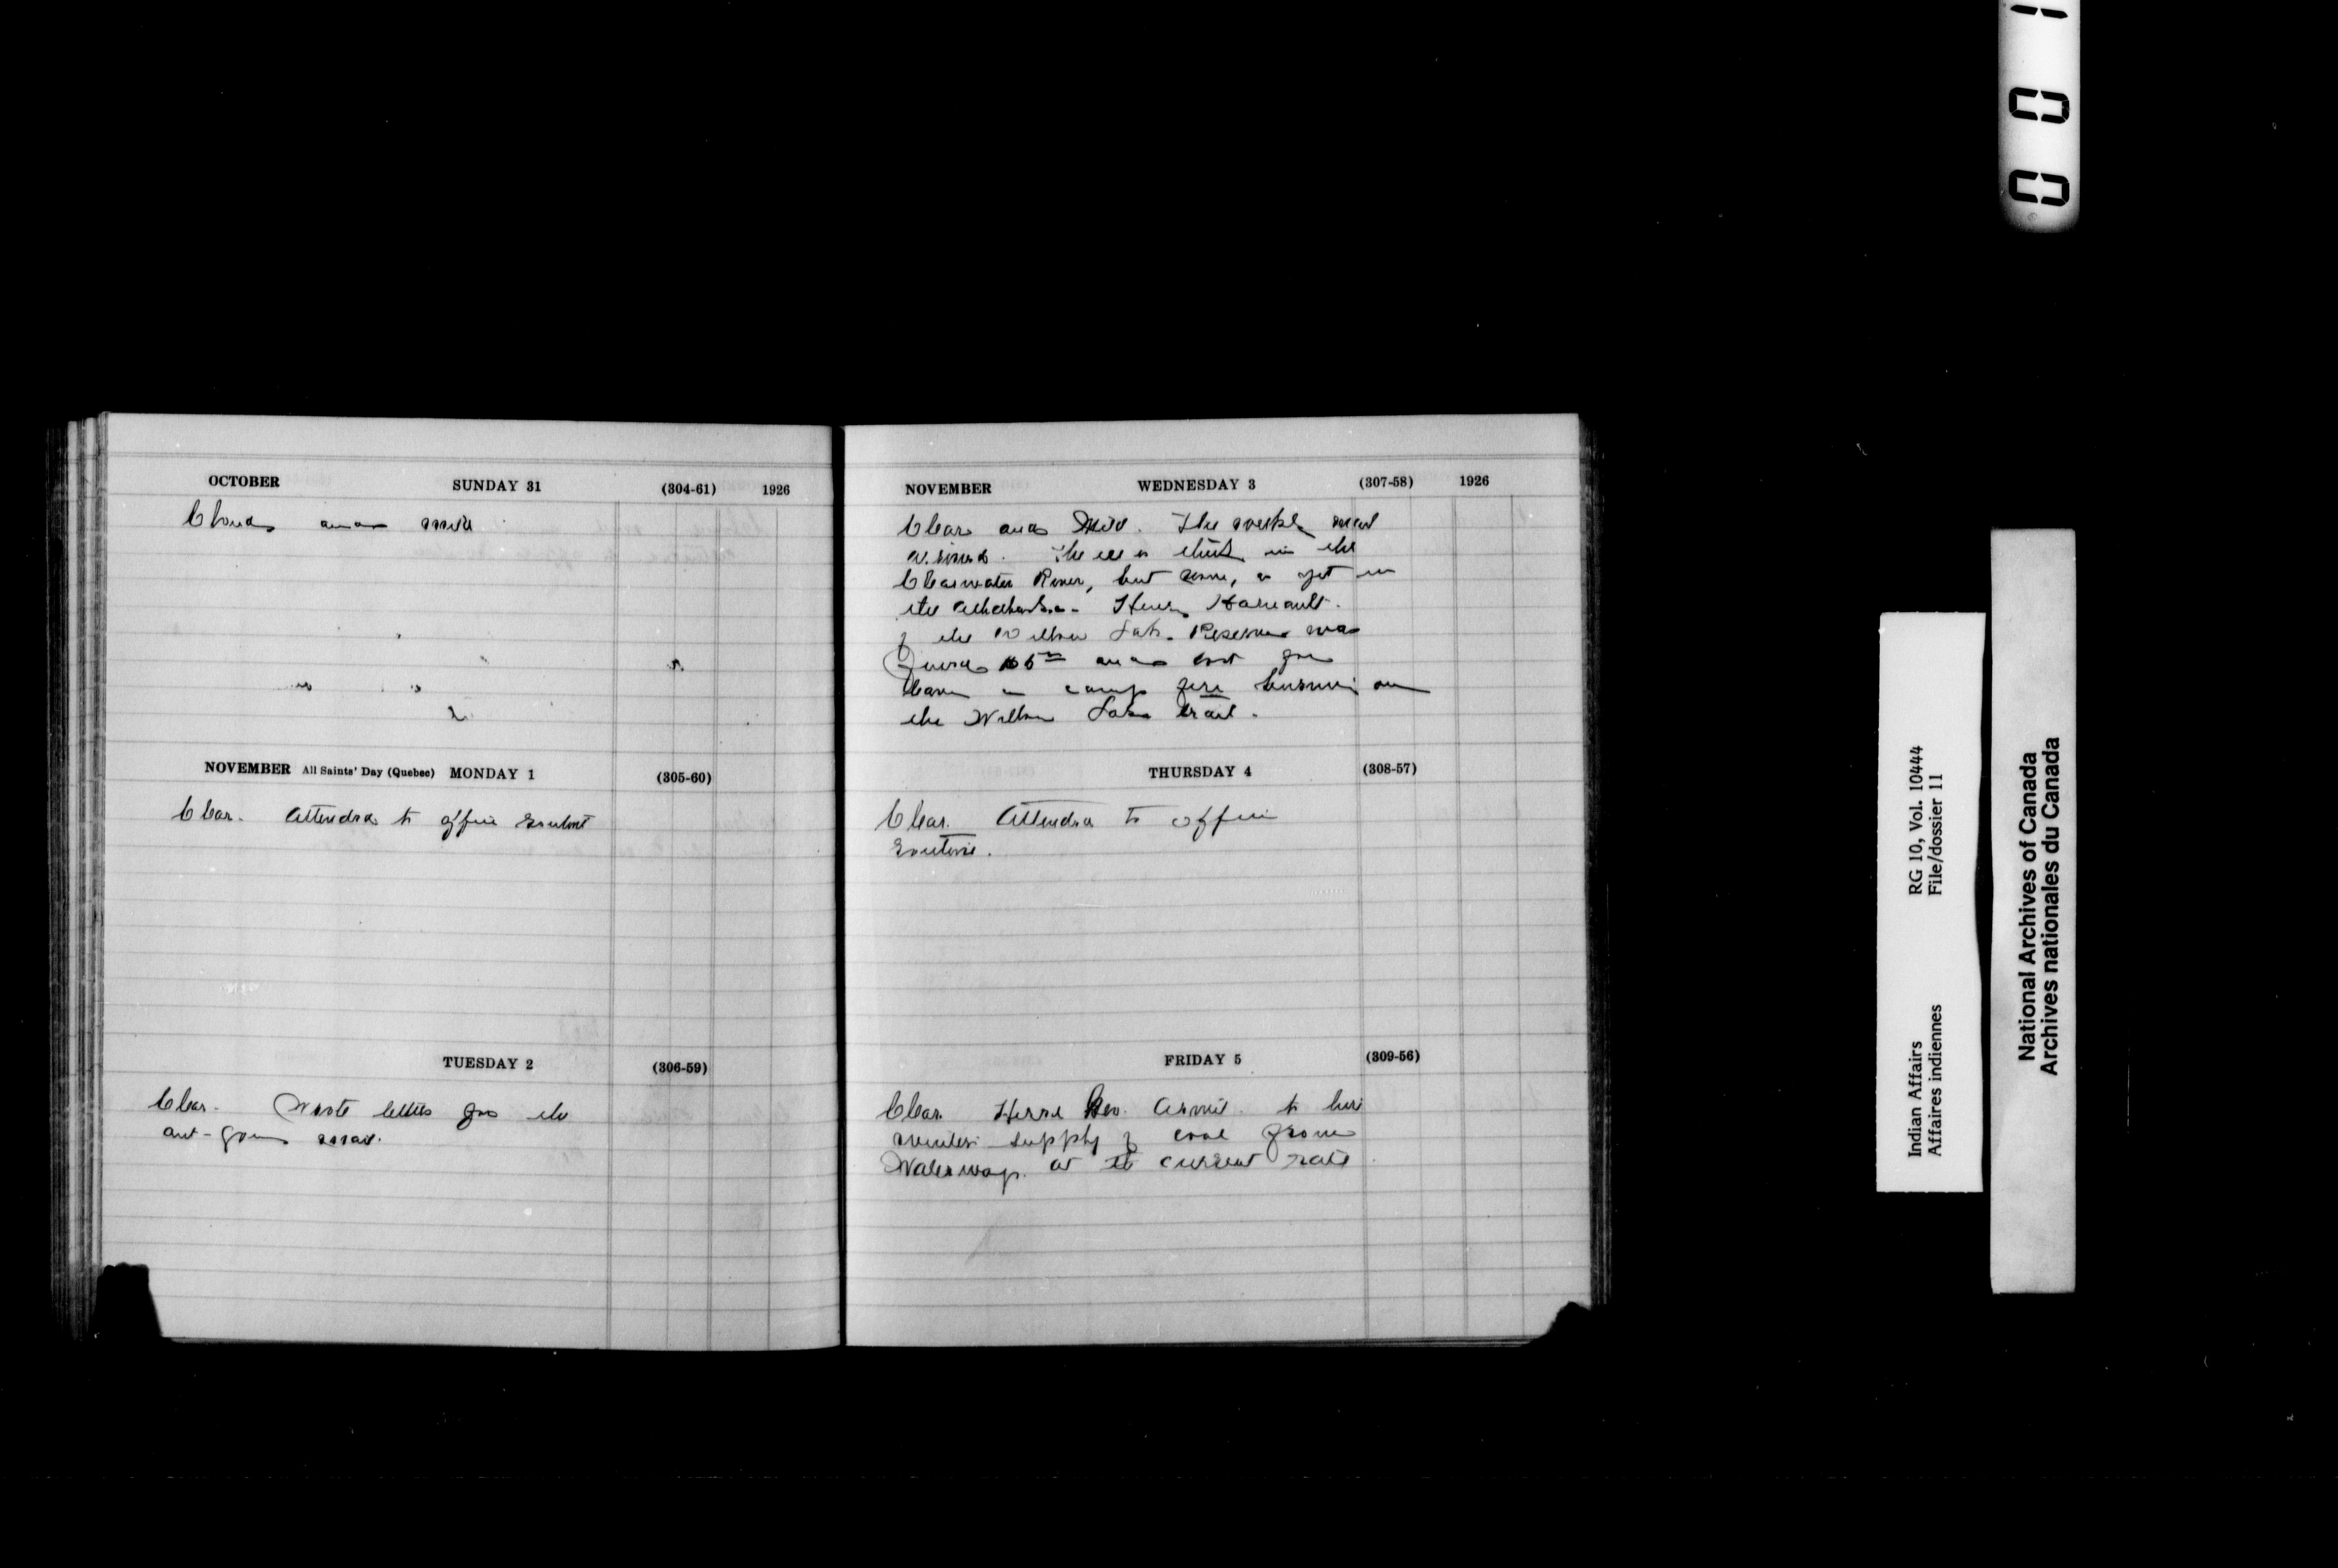 OCTOBER SUNDAY 31 (304-61) 1926
Cloudy and mild
NOVEMBER All Saints' Day (Quebec) MONDAY 1 (305-60)
Clear. Attended to office routine
TUESDAY 2 (306-59)
Clear. Wrote letters for the
out-going mail.
NOVEMBER WEDNESDAY 3 (307-58) 1926
Clear and Mild. The weekly mail
arrived. The ice is thick in the
Clearwater River, but none, as yet in
the Athabaska. Henry
of the Willow Lake Reserve was
fined and cost for
leaving a camp fire burning on
the Willow Lake trail.
THURSDAY 4 (308-57)
Clear. Attended to office
routine.
FRIDAY 5 (309-56)
Clear Hired Geo. to
winter supply of coal from
Waterways at the current rate
001
Indian Affairs RG 10, Vol. 10444
Affaires indiennes File/dossier 11
National Archives of Canada
Archives nationales du Canada